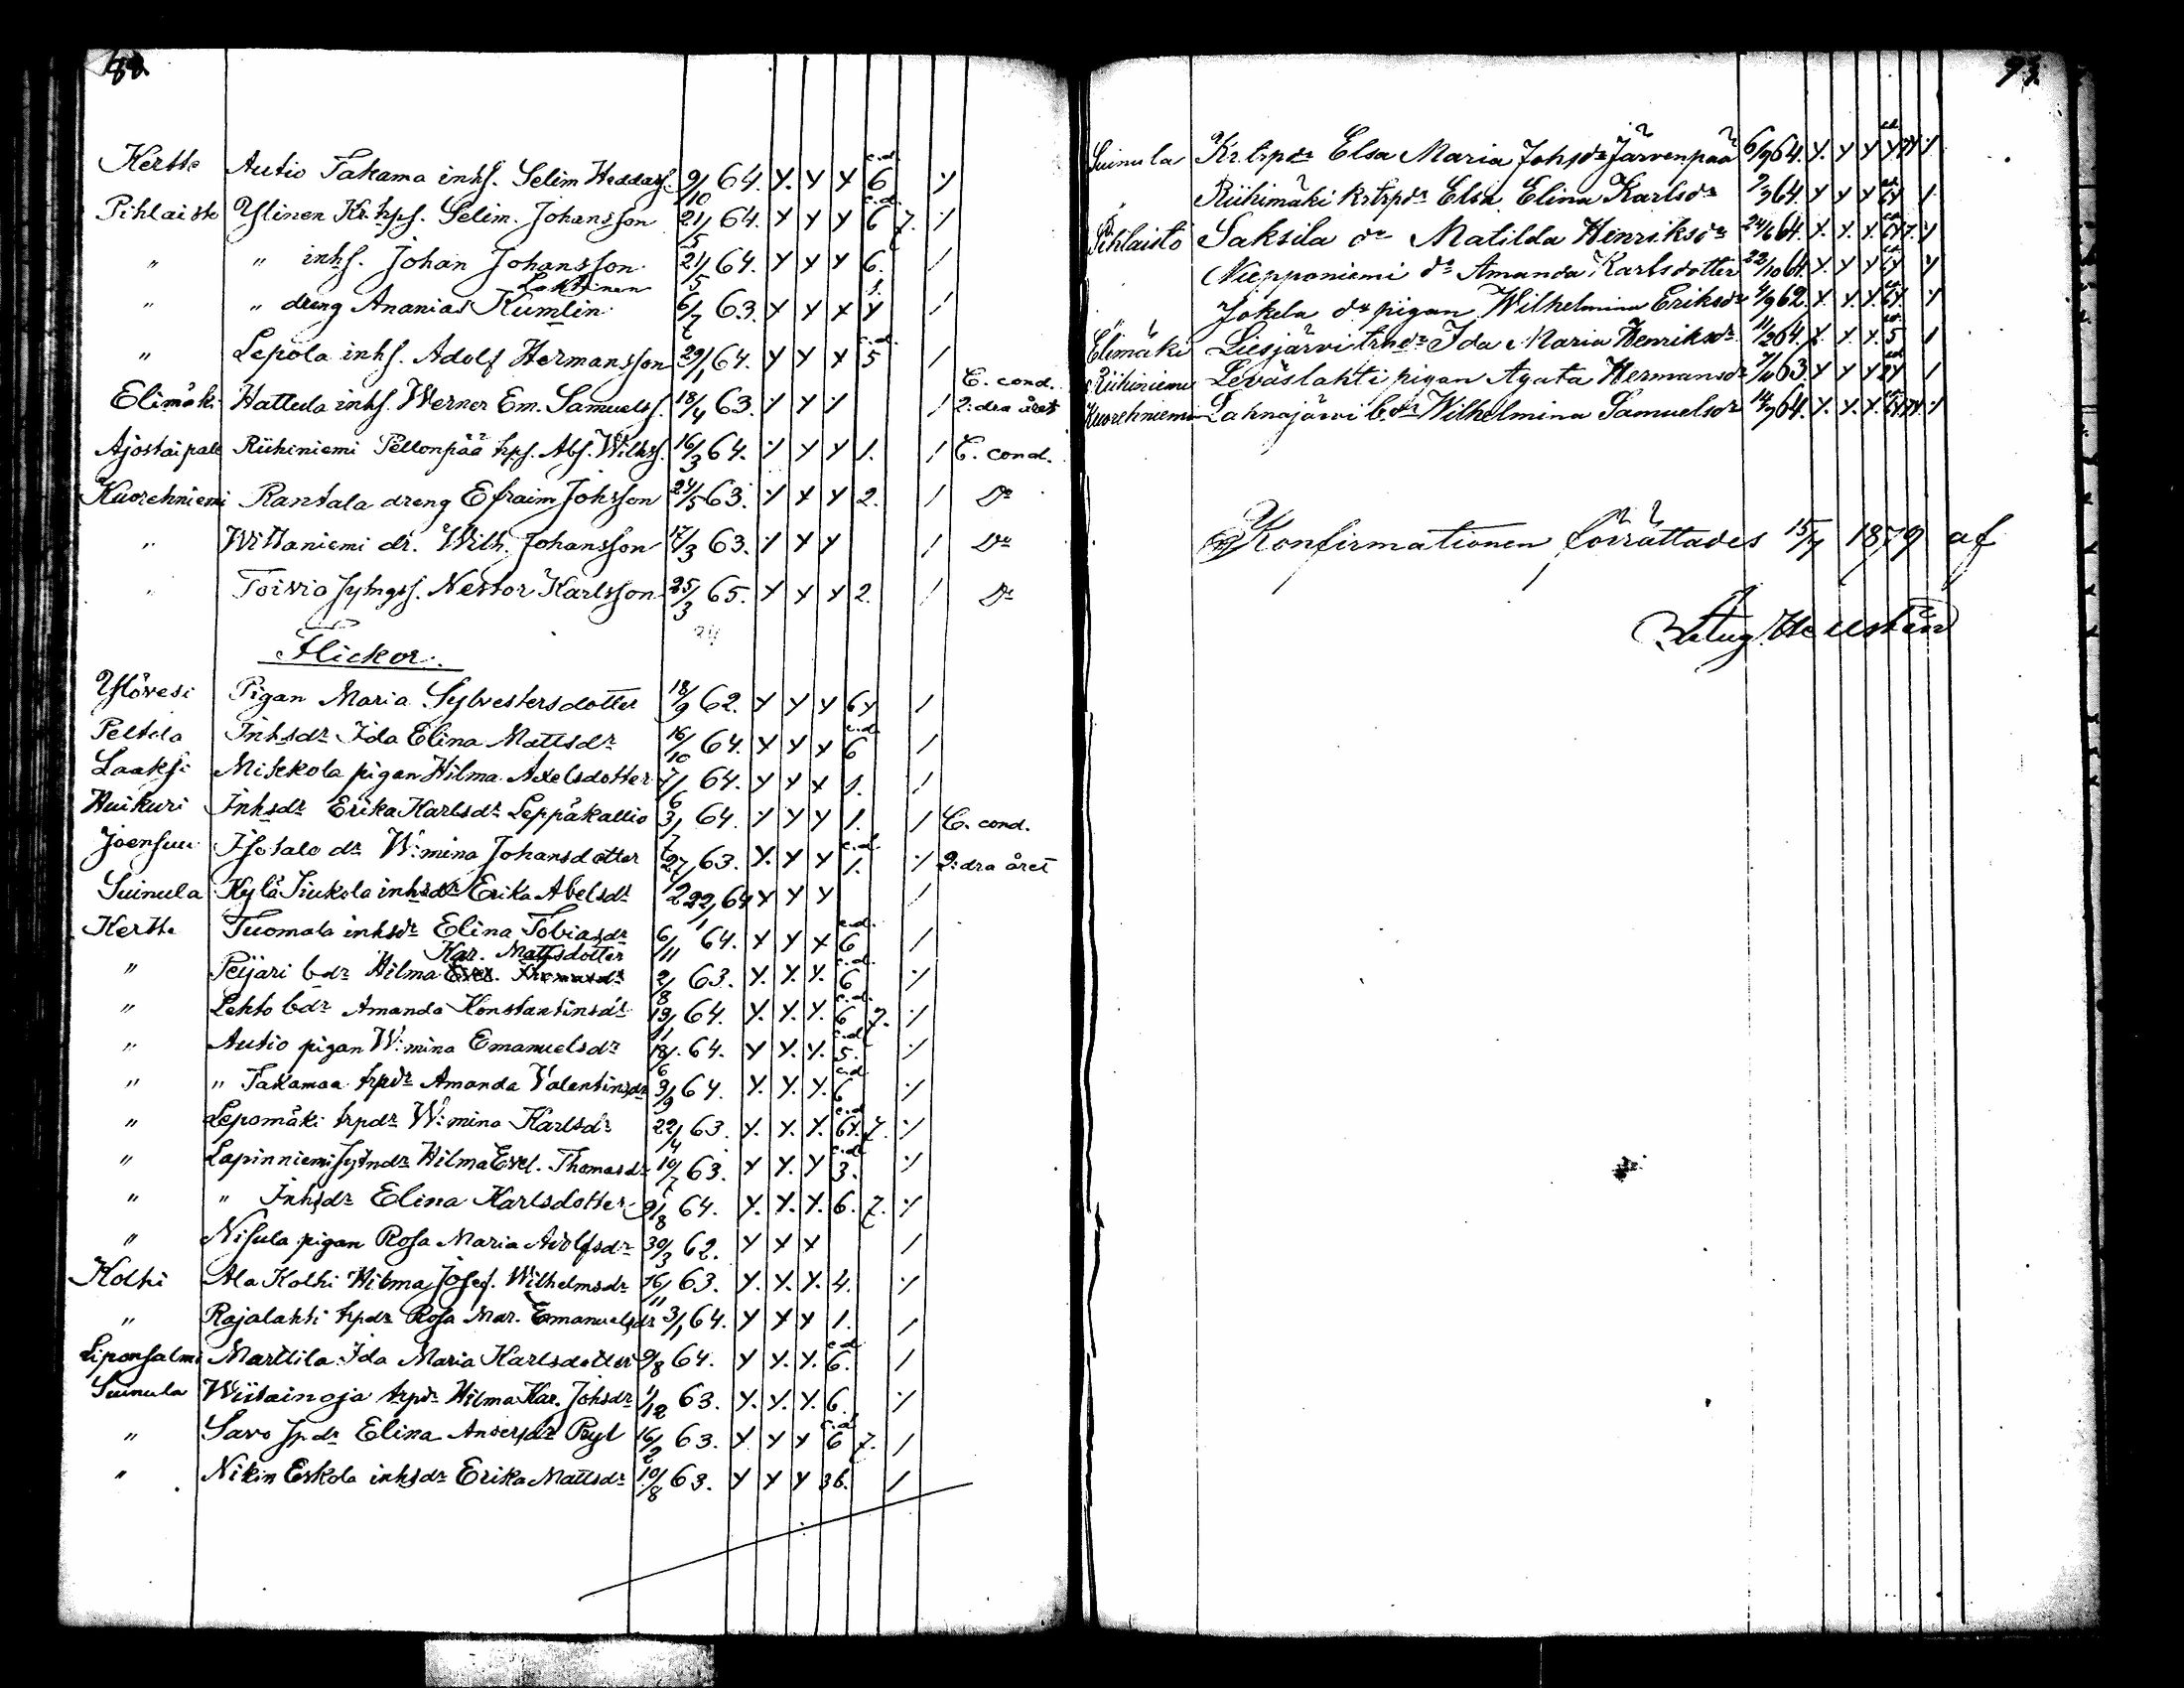 Kertte Autio Takama inhs. Selim Heddass. 9/10 64. y. y y c.d. 6 ⁒
Pihlaisto Ylinen Kr. trps. Selim. Johansson 21/5 64. y y y c.d. 6 7. ⁒
" " inhs. Johan Johansson 21/5 64. y y y 6. /
" " dreng Ananias Kumlin Lakttinen 6/7 63. y y y y /
" Lepola inhs. Adolf Hermansson 29/1 64. y y y c.d. 5 /
Elimäki Hattula inhs. Werner Em. Samuelss. 18/4 63. y y y / C. cond. 2:dra året
Ajostaipale Riihiniemi Pellonpää trps. Abs. Wilhss. 16/3 64. y y y 1. / C. cond.
Kuorehniemi Rantala dreng Efraim Johsson 24/5 63. y y y 2. / Do
" Wittaniemi dr. Wilh. Johansson 17/3 63. y y y / Do
" Toivio sytngss. Nestor Karlsson 25/3 65. y y y 2. / Do
Flickor.
Ylövesi Pigan Maria Sylvestersdotter 18/9 62. y y y 6y /
Peltola Inhsdr Ida Elina Mattsdr 16/10 64. y y y c.d. 6 /
Laaksi Mikkola pigan Hilma Axelsdotter 7/6 64. y y y 1. /
Huikuri Inhsdr Erika Karlsdr Leppäkallio 3/7 64. y y y 1. / C. cond.
Joensuu Isotalo dr W:mina Johansdotter 27/12 63. y. y y c.d. 1. ⁒ 2:dra året
Suinula Kylä Siukola inhsdr Erika Abelsdr 22/1 64 y y y /
Kertte Tuomala inhsdr Elina Tobiasdr 6/11 64. y y y c.d. 6 /
" Peijari bdr Hilma Kar. Mattsdotter 2/8 63. y. y. y. c.d. 6 ⁒
" Lehto bdr Amanda Konstantinsdr 19/11 64. y. y. y. c.d. 6 7. ⁒
" Autio pigan W:mina Emanuelsdr 18/6 64. y y. y. c.d. 5. ⁒
" " Takamaa trpdr Amanda Valentinsdr 3/9 64. y. y. y. c.d. 6 ⁒
" Lepomäki trpdr W:mina Karlsdr 22/4 63. y. y. y. c.d. 6y. 7. ⁒
" Lapinniemi sytndr Hilma Evel. Thomasdr 10/7 63. y y. y c.d. 3. ⁒
" " Inhsdr Elina Karlsdotter 21/8 64. y. y. y. 6. 7. ⁒
" Nisula pigan Rosa Maria Adolfsdr 30/3 62. y y y /
Kolhi Ala Kolhi Hilma Josef. Wilhelmsdr 16/11 63. y. y. y. 4. ⁒
" Rajalahti trpdr Rosa Mar. Emanuelsdr 3/1 64. y y y 1. /
Liponsalmi Marttila Ida Maria Karlsdotter 9/8 64. y y. y. c.d. 6. /
Suinula Wiitainoja trpdr Hilma Kar. Johsdr 1/12 63. y. y. y. 6. ⁒
" Savo spdr Elina Andersdr Ryl 16/2 63. y. y y c.d. 6 7. /
" Nikin Eskola inhsdr Erika Mattsdr 10/8 63. y y y 36. /
93.
Suinula Kr. trpdr Elsa Maria Johsdr Järvenpää 6/9 64. y. y y cd y 7y ⁒
" Riihimäki krtrpdr Elsa Elina Karlsdr 9/3 64. y y y cd 6y /
Pihlaisto Saksila dr Matilda Henriksdr 24/6 64. y. y. y. cd 6y 7. ⁒
Niepponiemi dr Amanda Karlsdotter 22/10 64. y. y y cd 6y ⁒
" Jokela dr pigan Wilhelmina Eriksdr 4/9 62. y. y. y. cd 6y. ⁒
Elimäki Liesjärvi trndr Ida Maria Henriksdr 11/12 64. y. y. y. cd 5 /
Riihiniemi Leväslahti pigan Agata Hermansdr 7/11 63. y y y cd 2y /
Kuorehniemi Lahnajärvi b.dr Wilhelmina Samuelsdr 14/9 64. y. y. y. 6y 7y. ⁒
Konfirmationen förrättades 15/7 1879 af
Aug. Heusten